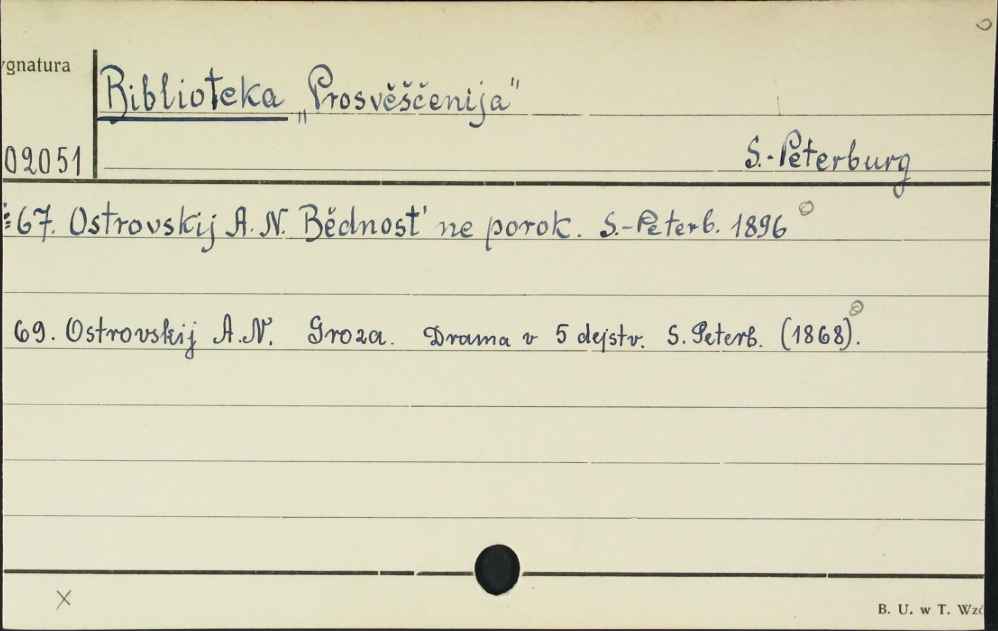 ygnatura
Biblioteka „Prosvěščenija"
02051
S.-Peterburg
67. Ostrovskij A. N. Bědnost' ne porok. S.-Peterb. 1896
69. Ostrovskij A. N. Groza. Drama v 5 dejstv. S. Peterb. (1868).
B. U. w T. Wzó